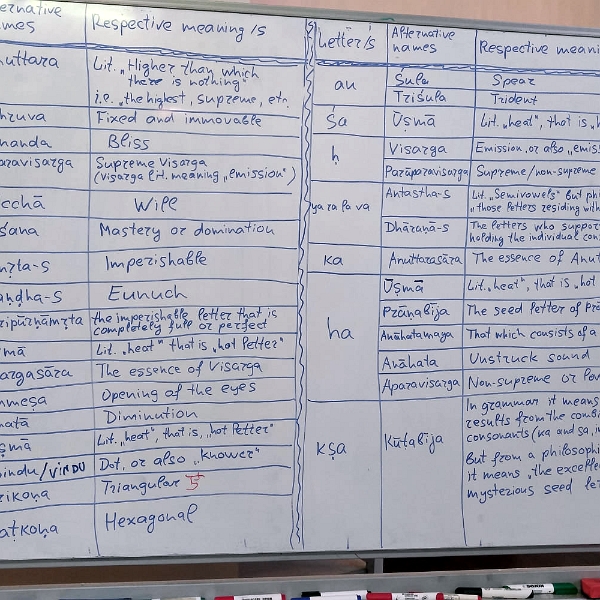 Respective meaning/s
Lit. „Higher than which
there is nothing"
i.e. „the highest, supreme, etc.
Fixed and immovable
Bliss
Supreme Visarga
(Visarga lit. meaning „emission")
Will
Mastery or domination
Imperishable
Eunuch
the imperishable letter that is
completely full or perfect
Lit. „heat" that is „hot letter"
The essence of Visarga
Opening of the eyes
Diminution
Lit. „heat", that is, „hot letter"
bindu/VINDU Dot, or also „knower"
Triangular
Hexagonal
Letter/s Alternative
names Respective
au Śūla Spear
Triśūla Trident
Śa Ūṣmā Lit. „heat", that is
ḥ Visarga Emission, or also
Parāparavisarga Supreme/non-supreme
ya ra la va Antastha-s Lit. „Semivowels" But
„those letters residing
Dhāraṇā-s The letters who
holding the individual
ka Anuttarasāra The essence of
ha Ūṣmā Lit. „heat", that is, „hot
Prāṇabīja The seed letter of
Anāhatamaya That which consists of a
Anāhata Unstruck sound
Aparavisarga Non-supreme or
kṣa Kūṭabīja In grammar it means
results from the
consonants (ka and sa,
But from a
it means „the
mysterious seed